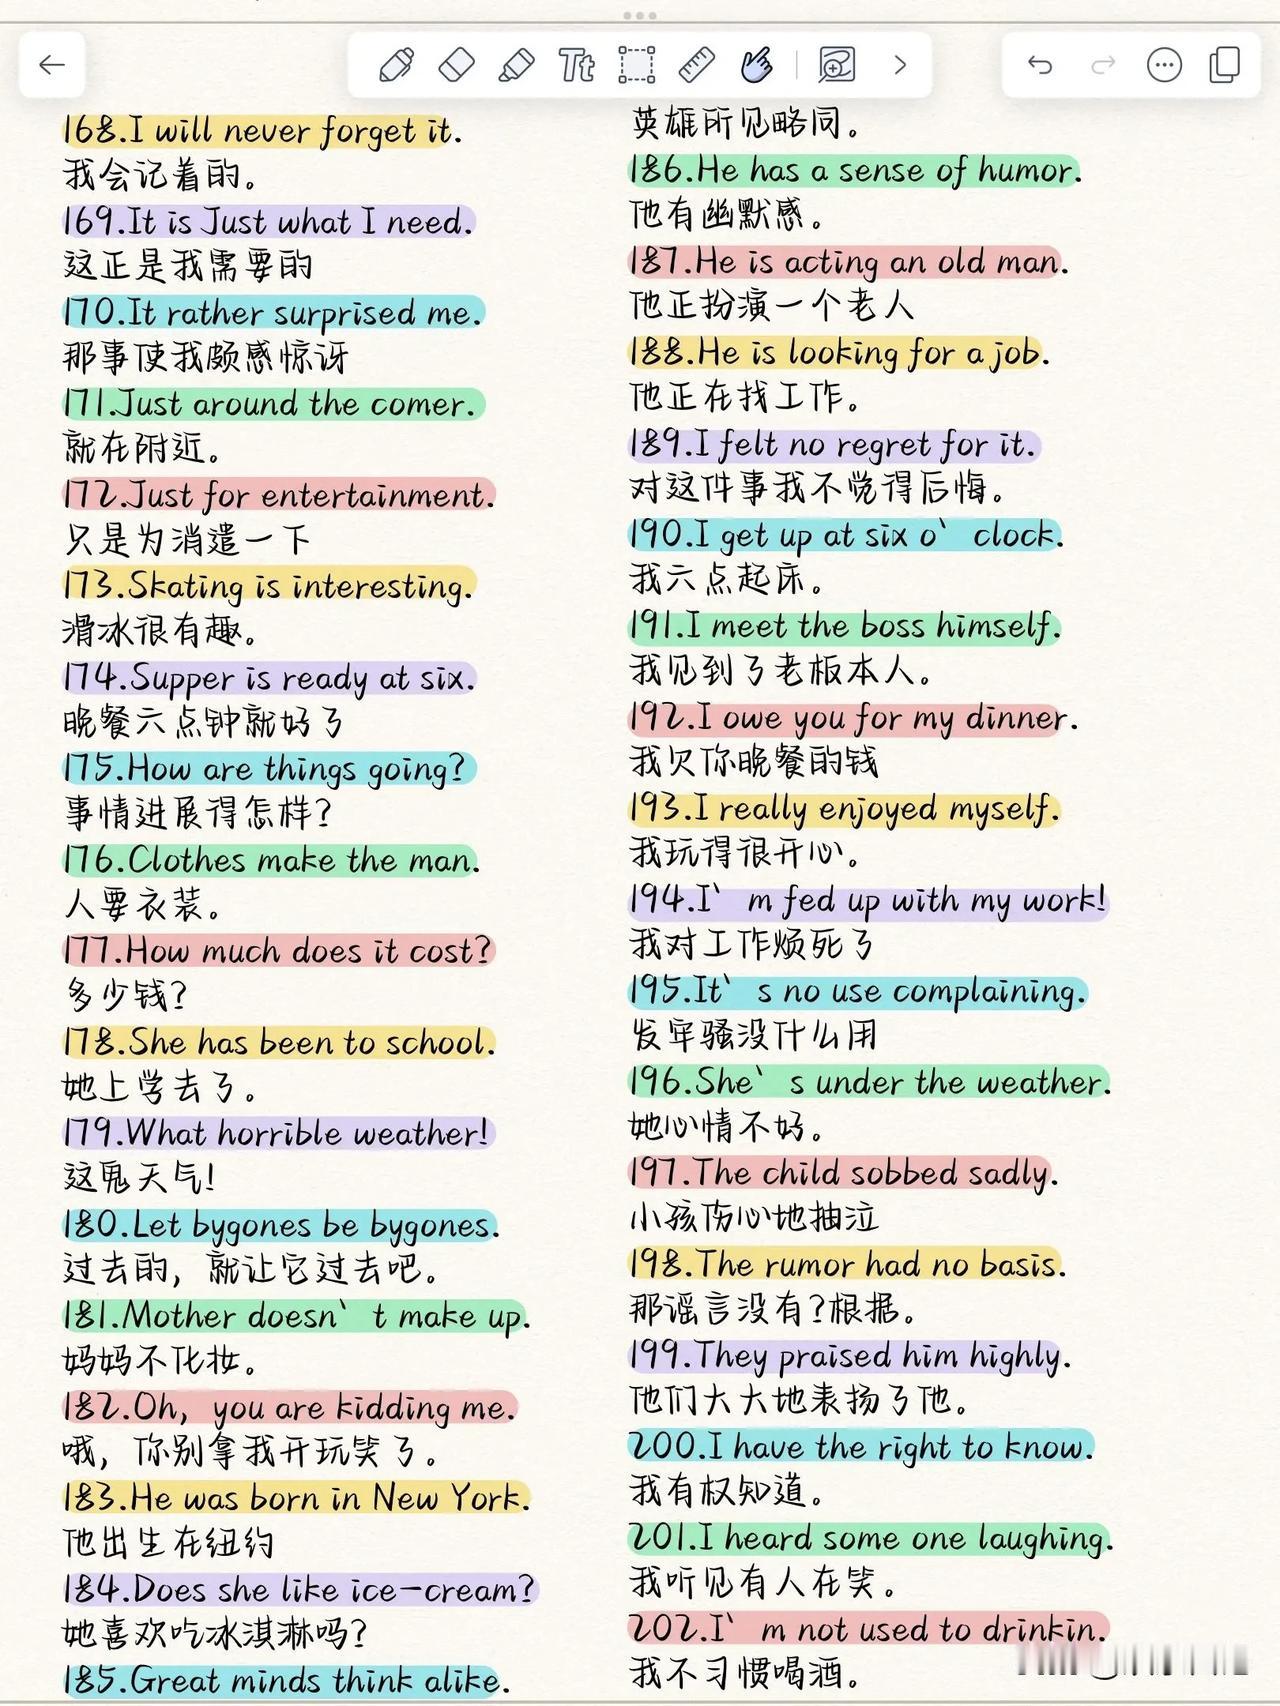 168.I will never forget it.
我会记着的。
169.It is Just what I need.
这正是我需要的
170.It rather surprised me.
那事使我颇感惊讶
171.Just around the comer.
就在附近。
172.Just for entertainment.
只是为消遣一下
173.Skating is interesting.
滑冰很有趣。
174.Supper is ready at six.
晚餐六点钟就好了
175.How are things going?
事情进展得怎样?
176.Clothes make the man.
人要衣装。
177.How much does it cost?
多少钱?
178.She has been to school.
她上学去了。
179.What horrible weather!
这鬼天气!
180.Let bygones be bygones.
过去的，就让它过去吧。
181.Mother doesn‘t make up.
妈妈不化妆。
182.Oh, you are kidding me.
哦，你别拿我开玩笑了。
183.He was born in New York.
他出生在纽约
184.Does she like ice-cream?
她喜欢吃冰淇淋吗?
185.Great minds think alike.
英雄所见略同。
186.He has a sense of humor.
他有幽默感。
187.He is acting an old man.
他正扮演一个老人
188.He is looking for a job.
他正在找工作。
189.I felt no regret for it.
对这件事我不觉得后悔。
190.I get up at six o‘clock.
我六点起床。
191.I meet the boss himself.
我见到了老板本人。
192.I owe you for my dinner.
我欠你晚餐的钱
193.I really enjoyed myself.
我玩得很开心。
194.I‘m fed up with my work!
我对工作烦死了
195.It‘s no use complaining.
发牢骚没什么用
196.She‘s under the weather.
她心情不好。
197.The child sobbed sadly.
小孩伤心地抽泣
198.The rumor had no basis.
那谣言没有?根据。
199.They praised him highly.
他们大大地表扬了他。
200.I have the right to know.
我有权知道。
201.I heard some one laughing.
我听见有人在笑。
202.I‘m not used to drinkin.
我不习惯喝酒。